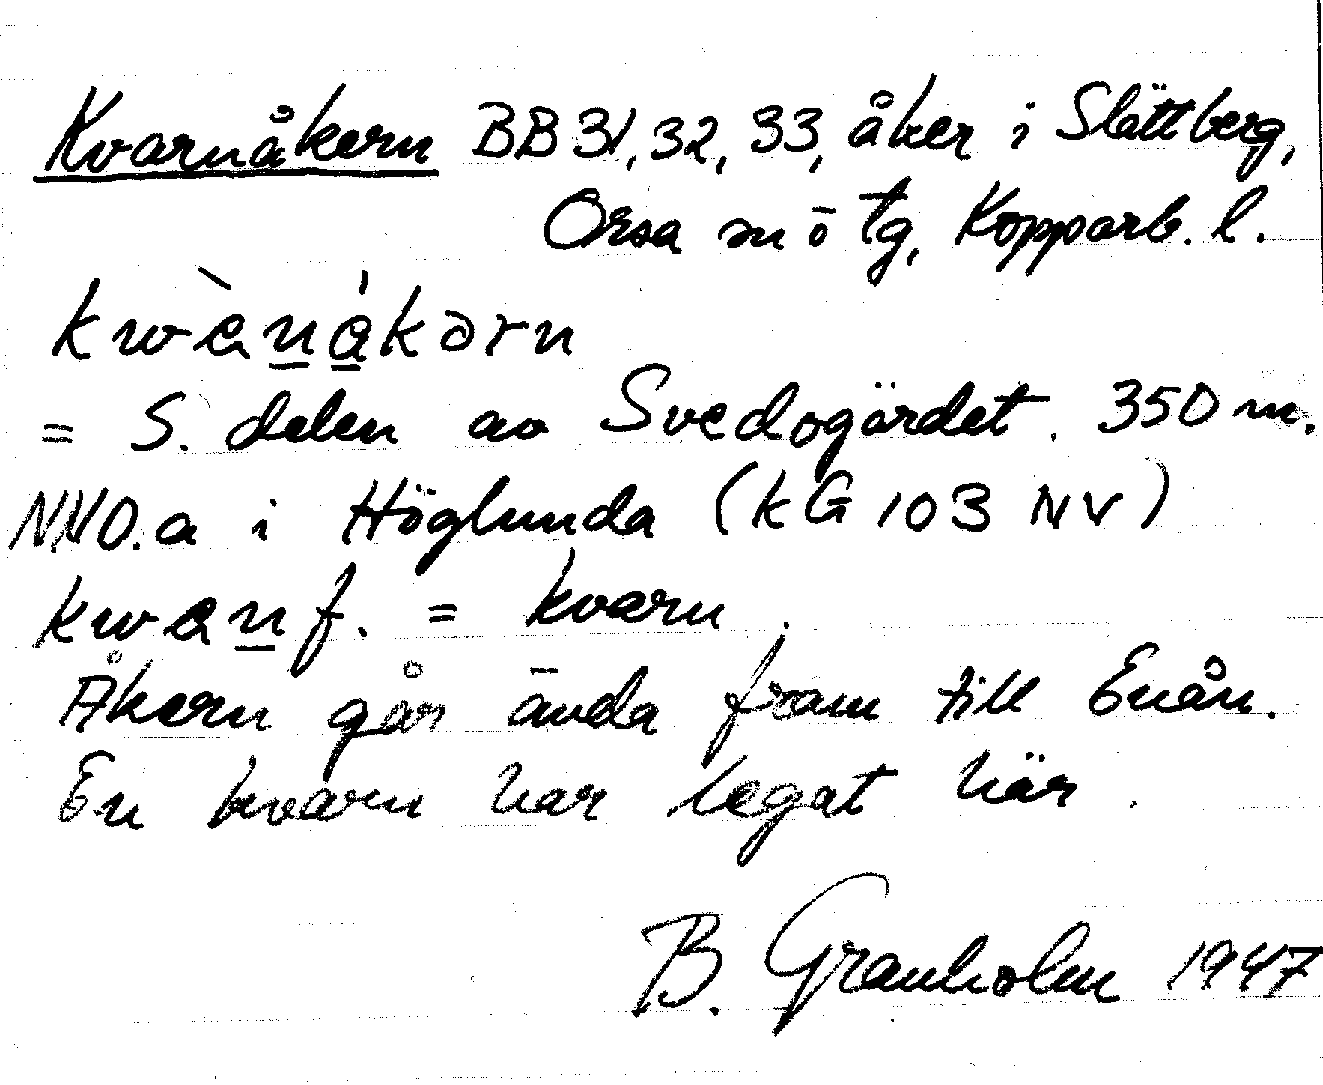 Kvarnåkern BB 31, 32, 33, åker i Slättberg,
Orsa sn ō tg, Kopparb. l.
kwὰn̲á̲kərn
= S. delen av Svedogärdet. 350 m.
NNO. a i Höglunda (kG 103 NV)
kwan̲ f. = kvarn.
Åkern går ända fram till Enån.
En kvarn har legat här.
B. Granholm 1947